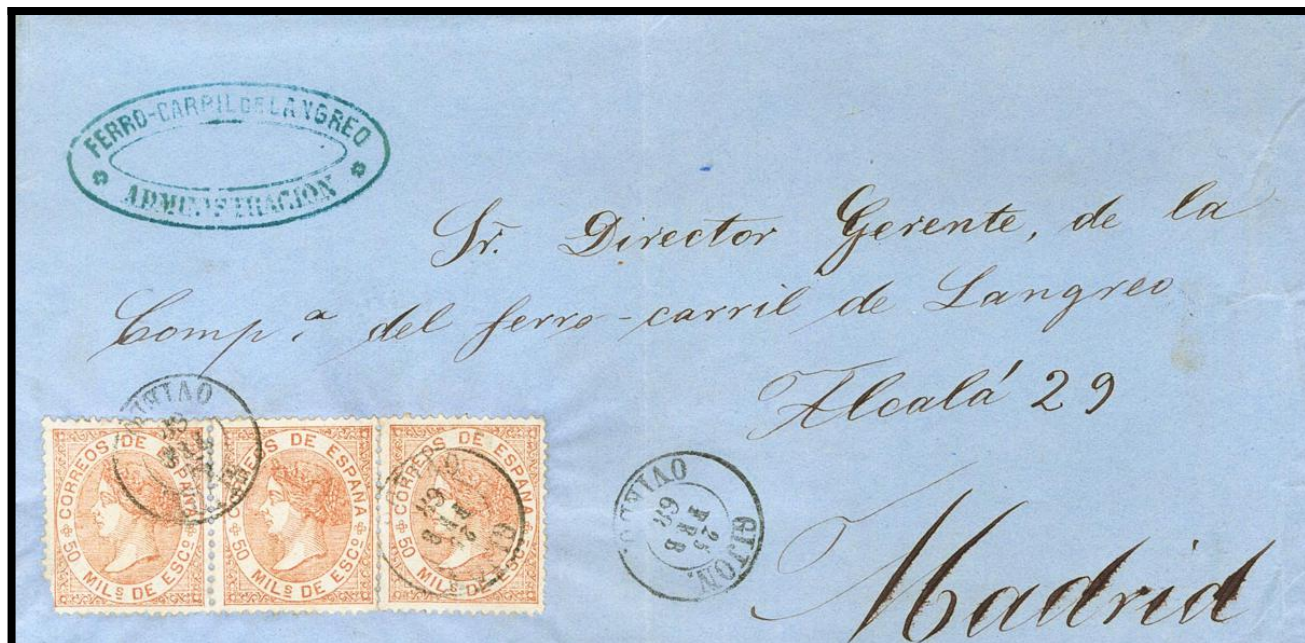 FERRO-CARRIL DE LANGREO
ADMINISTRACION
Sr. Director Gerente, de la
Comp.ª del ferro-carril de Langreo
Alcalá 29
Madrid
CORREOS DE ESPAÑA
50 MILS DE ESCO
CORREOS DE ESPAÑA
50 MILS DE ESCO
CORREOS DE ESPAÑA
50 MILS DE ESCO
GIJON.
25
FEB
69
OVIEDO.